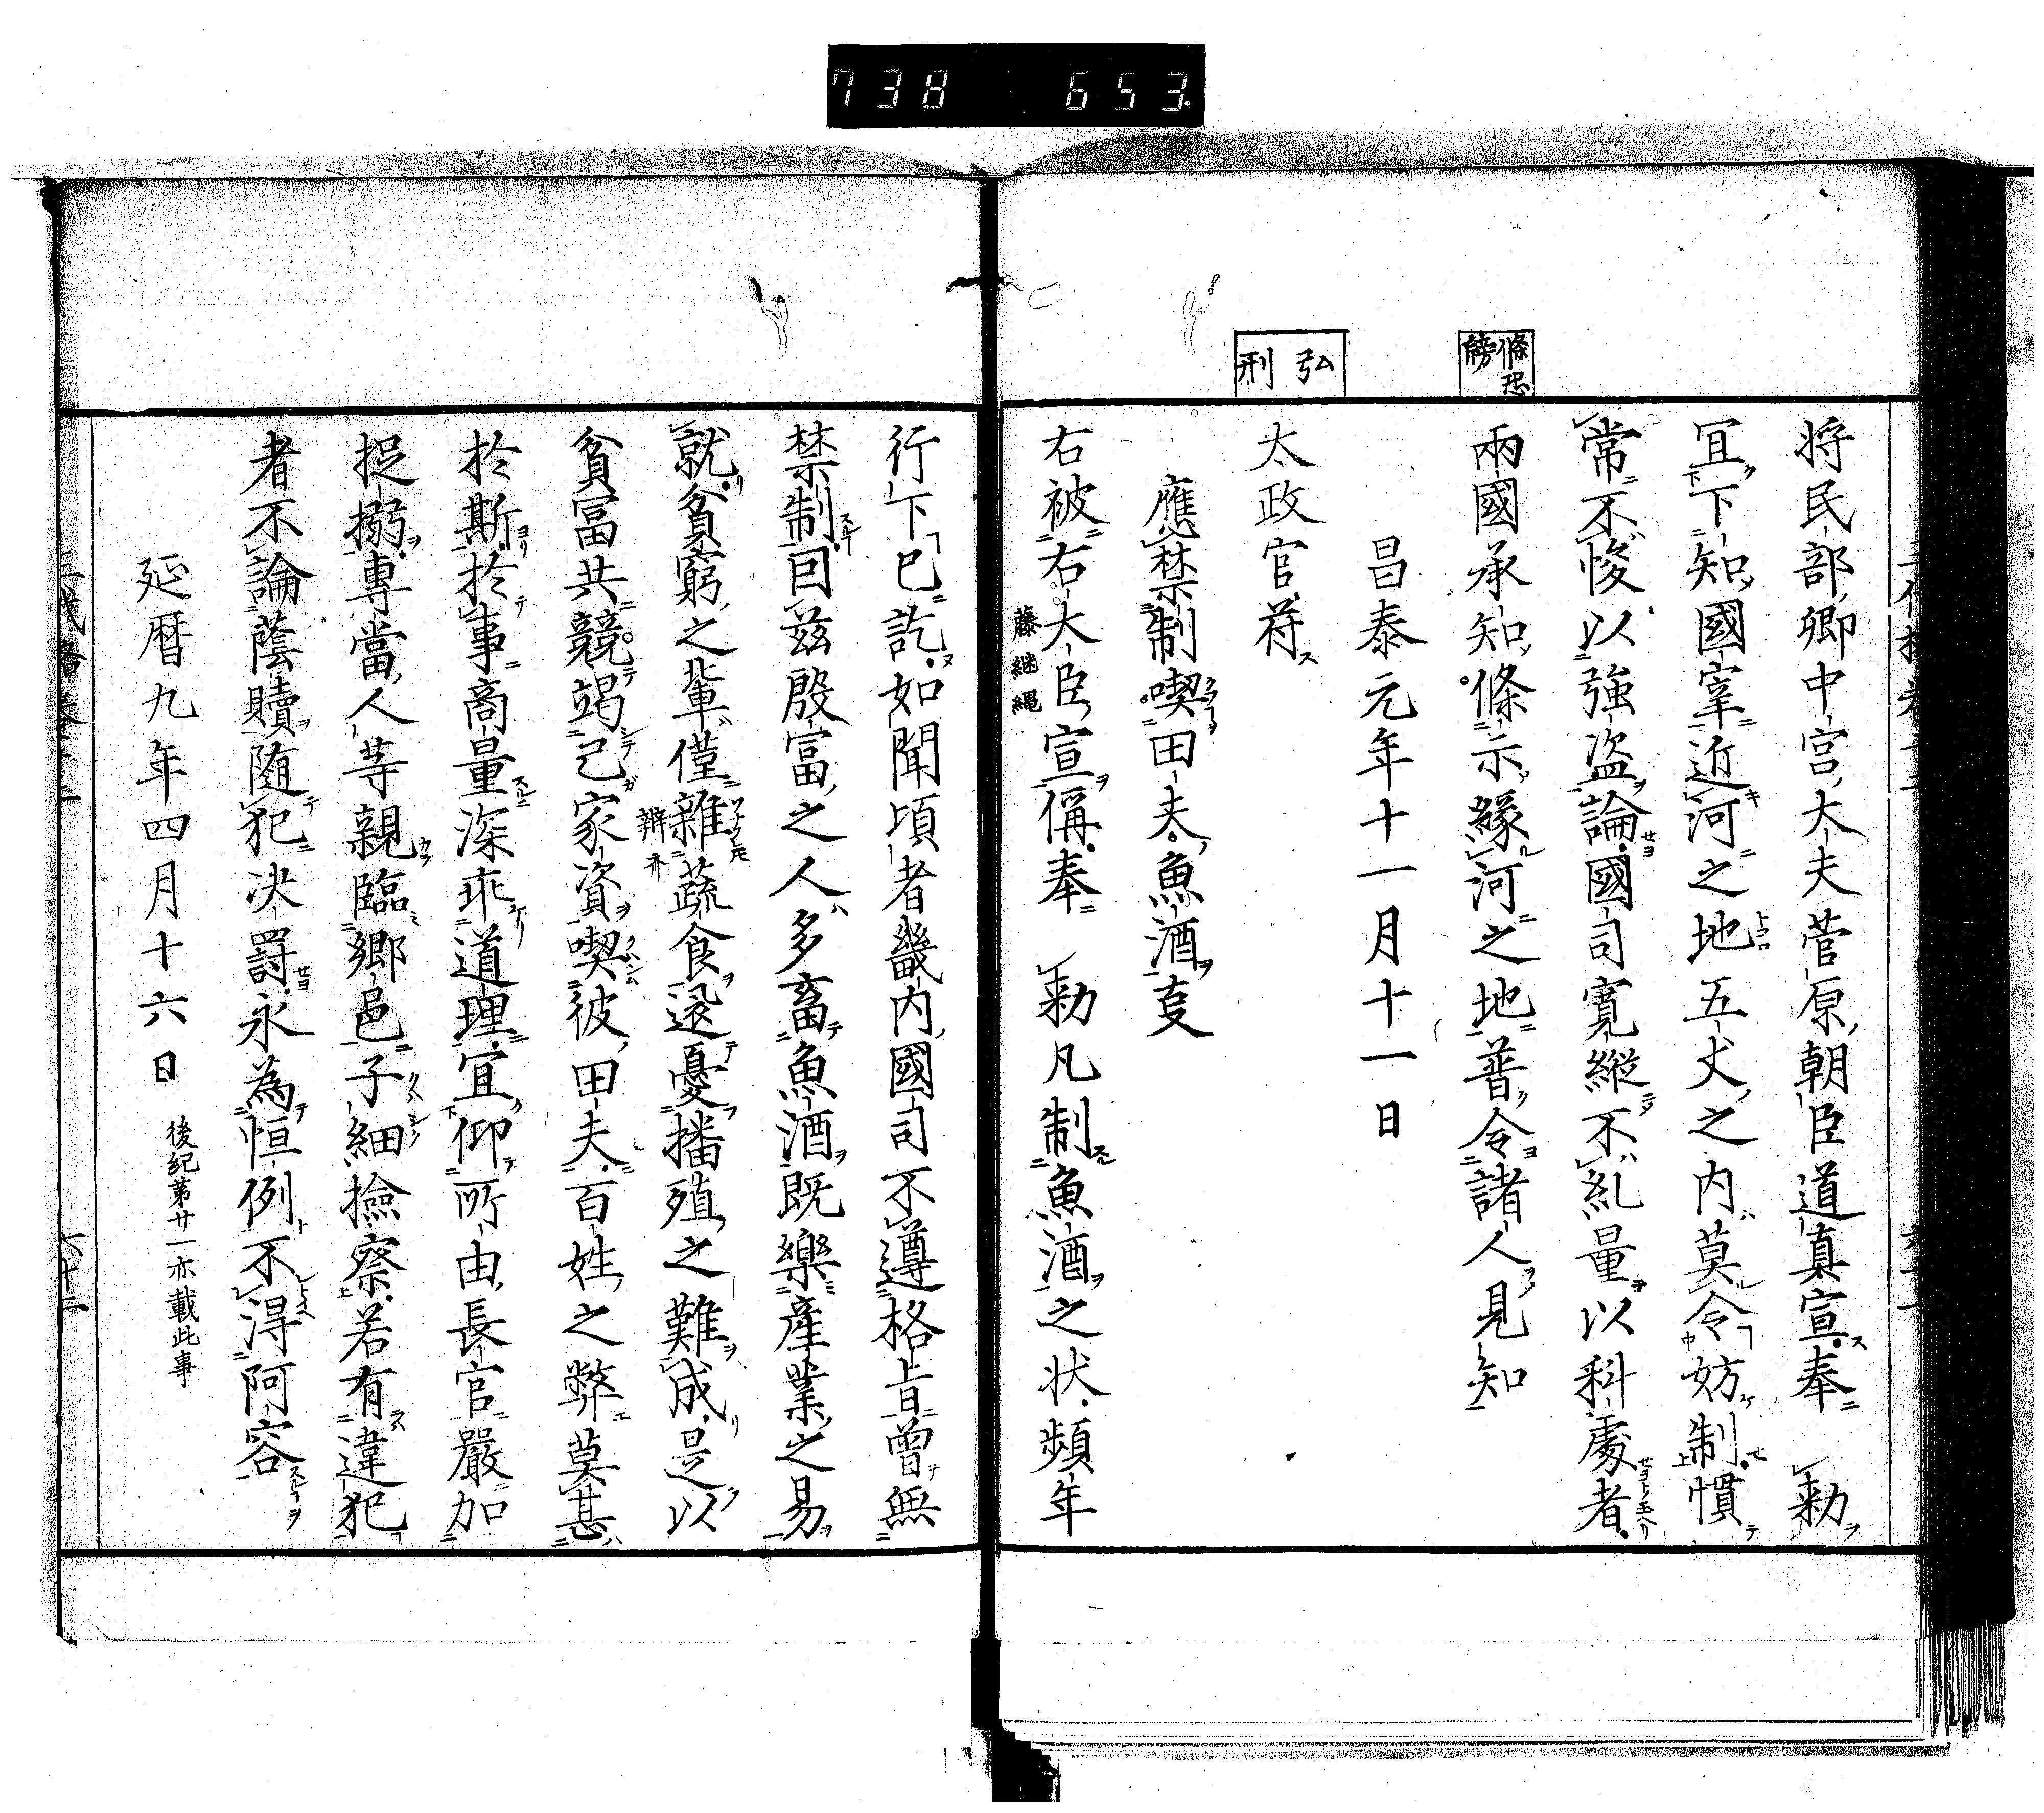 738 653.
將民部卿中宮大夫菅原朝臣道真宣奉 勅
冝下知國宰近河之地五丈之内莫令妨制慣
常不悛以強盜論國司寛縱不糺量以科處者
條恐
牓
兩國承知條示緣河之地普令諸人見知
昌泰元年十一月十一日
弘
刑
太政官符
應禁制喫田夫魚酒㕝
右被右大臣宣偁奉 勅凡制魚酒之状頻年
藤継縄
行下已訖如聞頃者畿内國司不遵格旨曾無
禁制因茲殷富之人多畜魚酒既樂產業之易
就貧窮之輩僅雜蔬食還憂播殖之難成是以
辨齐
貧冨共競竭己家資喫彼田夫百姓之弊莫甚
於斯於事商量深乖道理宜仰所由長官嚴加
捉搦專當人等親臨鄉邑子細撿察若有違犯
者不論蔭贖随犯決罸永為恒例不得阿容
延曆九年四月十六日
後紀第廿一亦載此事
六十二